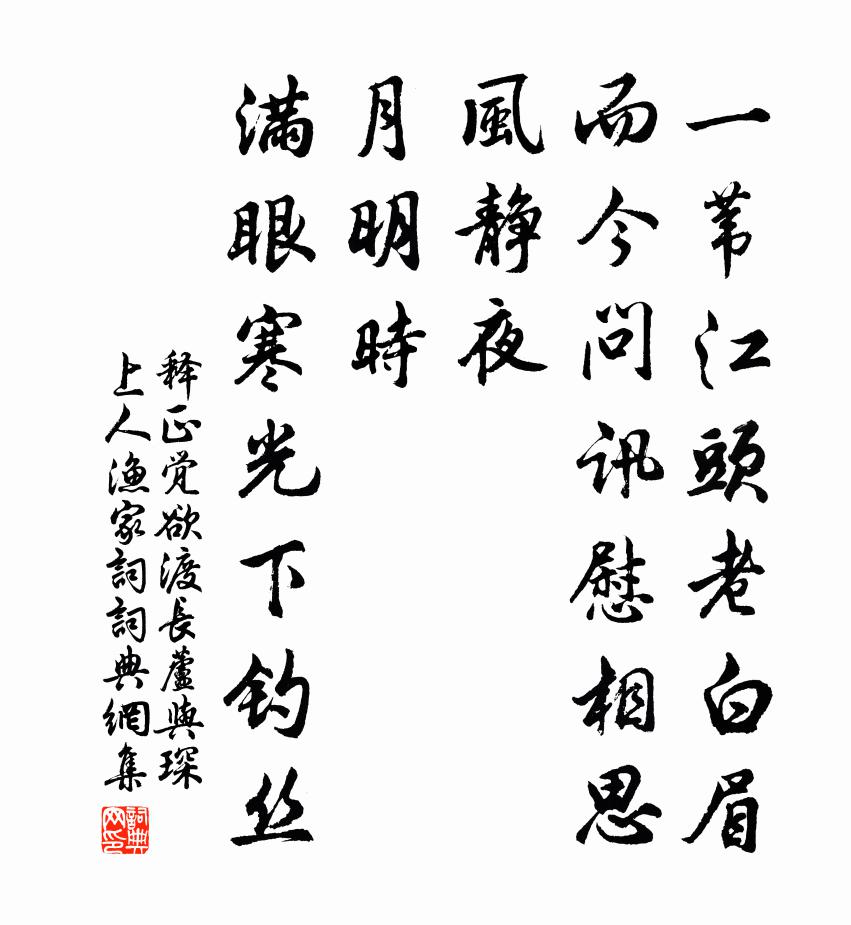 一苇江頭老白眉
而今問訊慰相思
風靜夜
月明時
滿眼寒光下钓丝
释正觉欲渡長蘆與琛
上人漁家詞詞典網集
詞典
网印